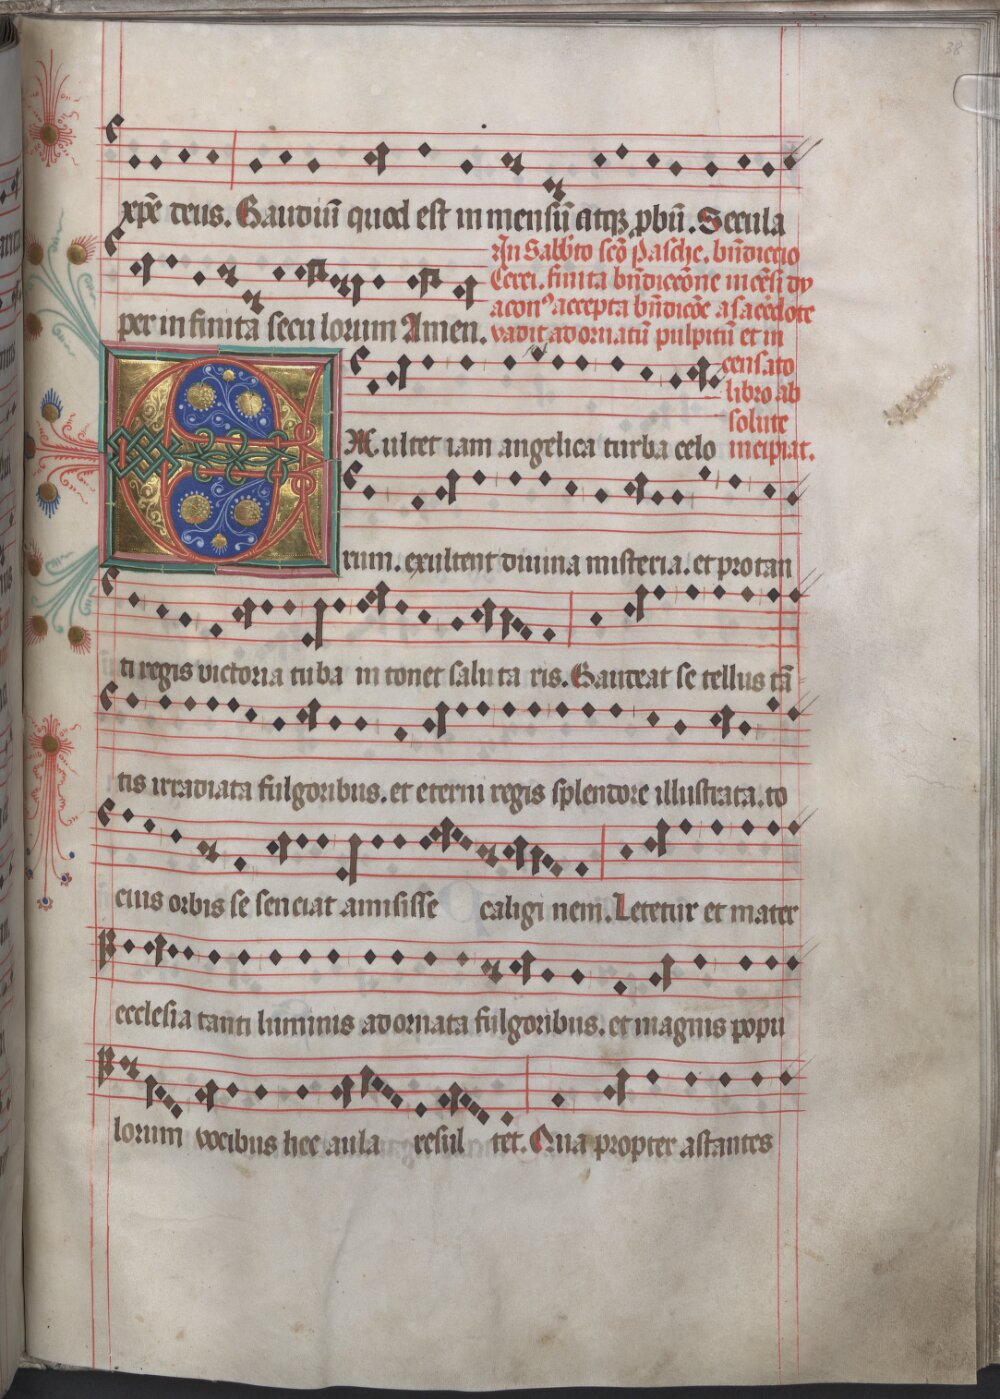 38
xp̄e deus. Gaudiū quod est in mensū atqꝫ pbū. Secula
per in finita secu lorum Amen.
In Sabb̄to scō Pasche. bn̄dictio
Cerei. finita bn̄dicc̄one incēsi dy
aconꝰ accepta bn̄dicōe a sac̄dote
vadit ad ornatū pulpitū et in
censato
libro ab
solute
incipiat.
EXultet iam angelica turba celo
rum. exultent diuina misteria. et pro tan
ti regis victoria tuba in tonet saluta ris. Gaudeat se tellus tā
tis irradiata fulgoribus. et eterni regis splendore illustrata. to
cius orbis se senciat amisisse caligi nem. Letetur et mater
ecclesia tanti luminis adornata fulgoribus. et magnis popu
lorum vocibus hec aula resul tet. Qua propter astantes